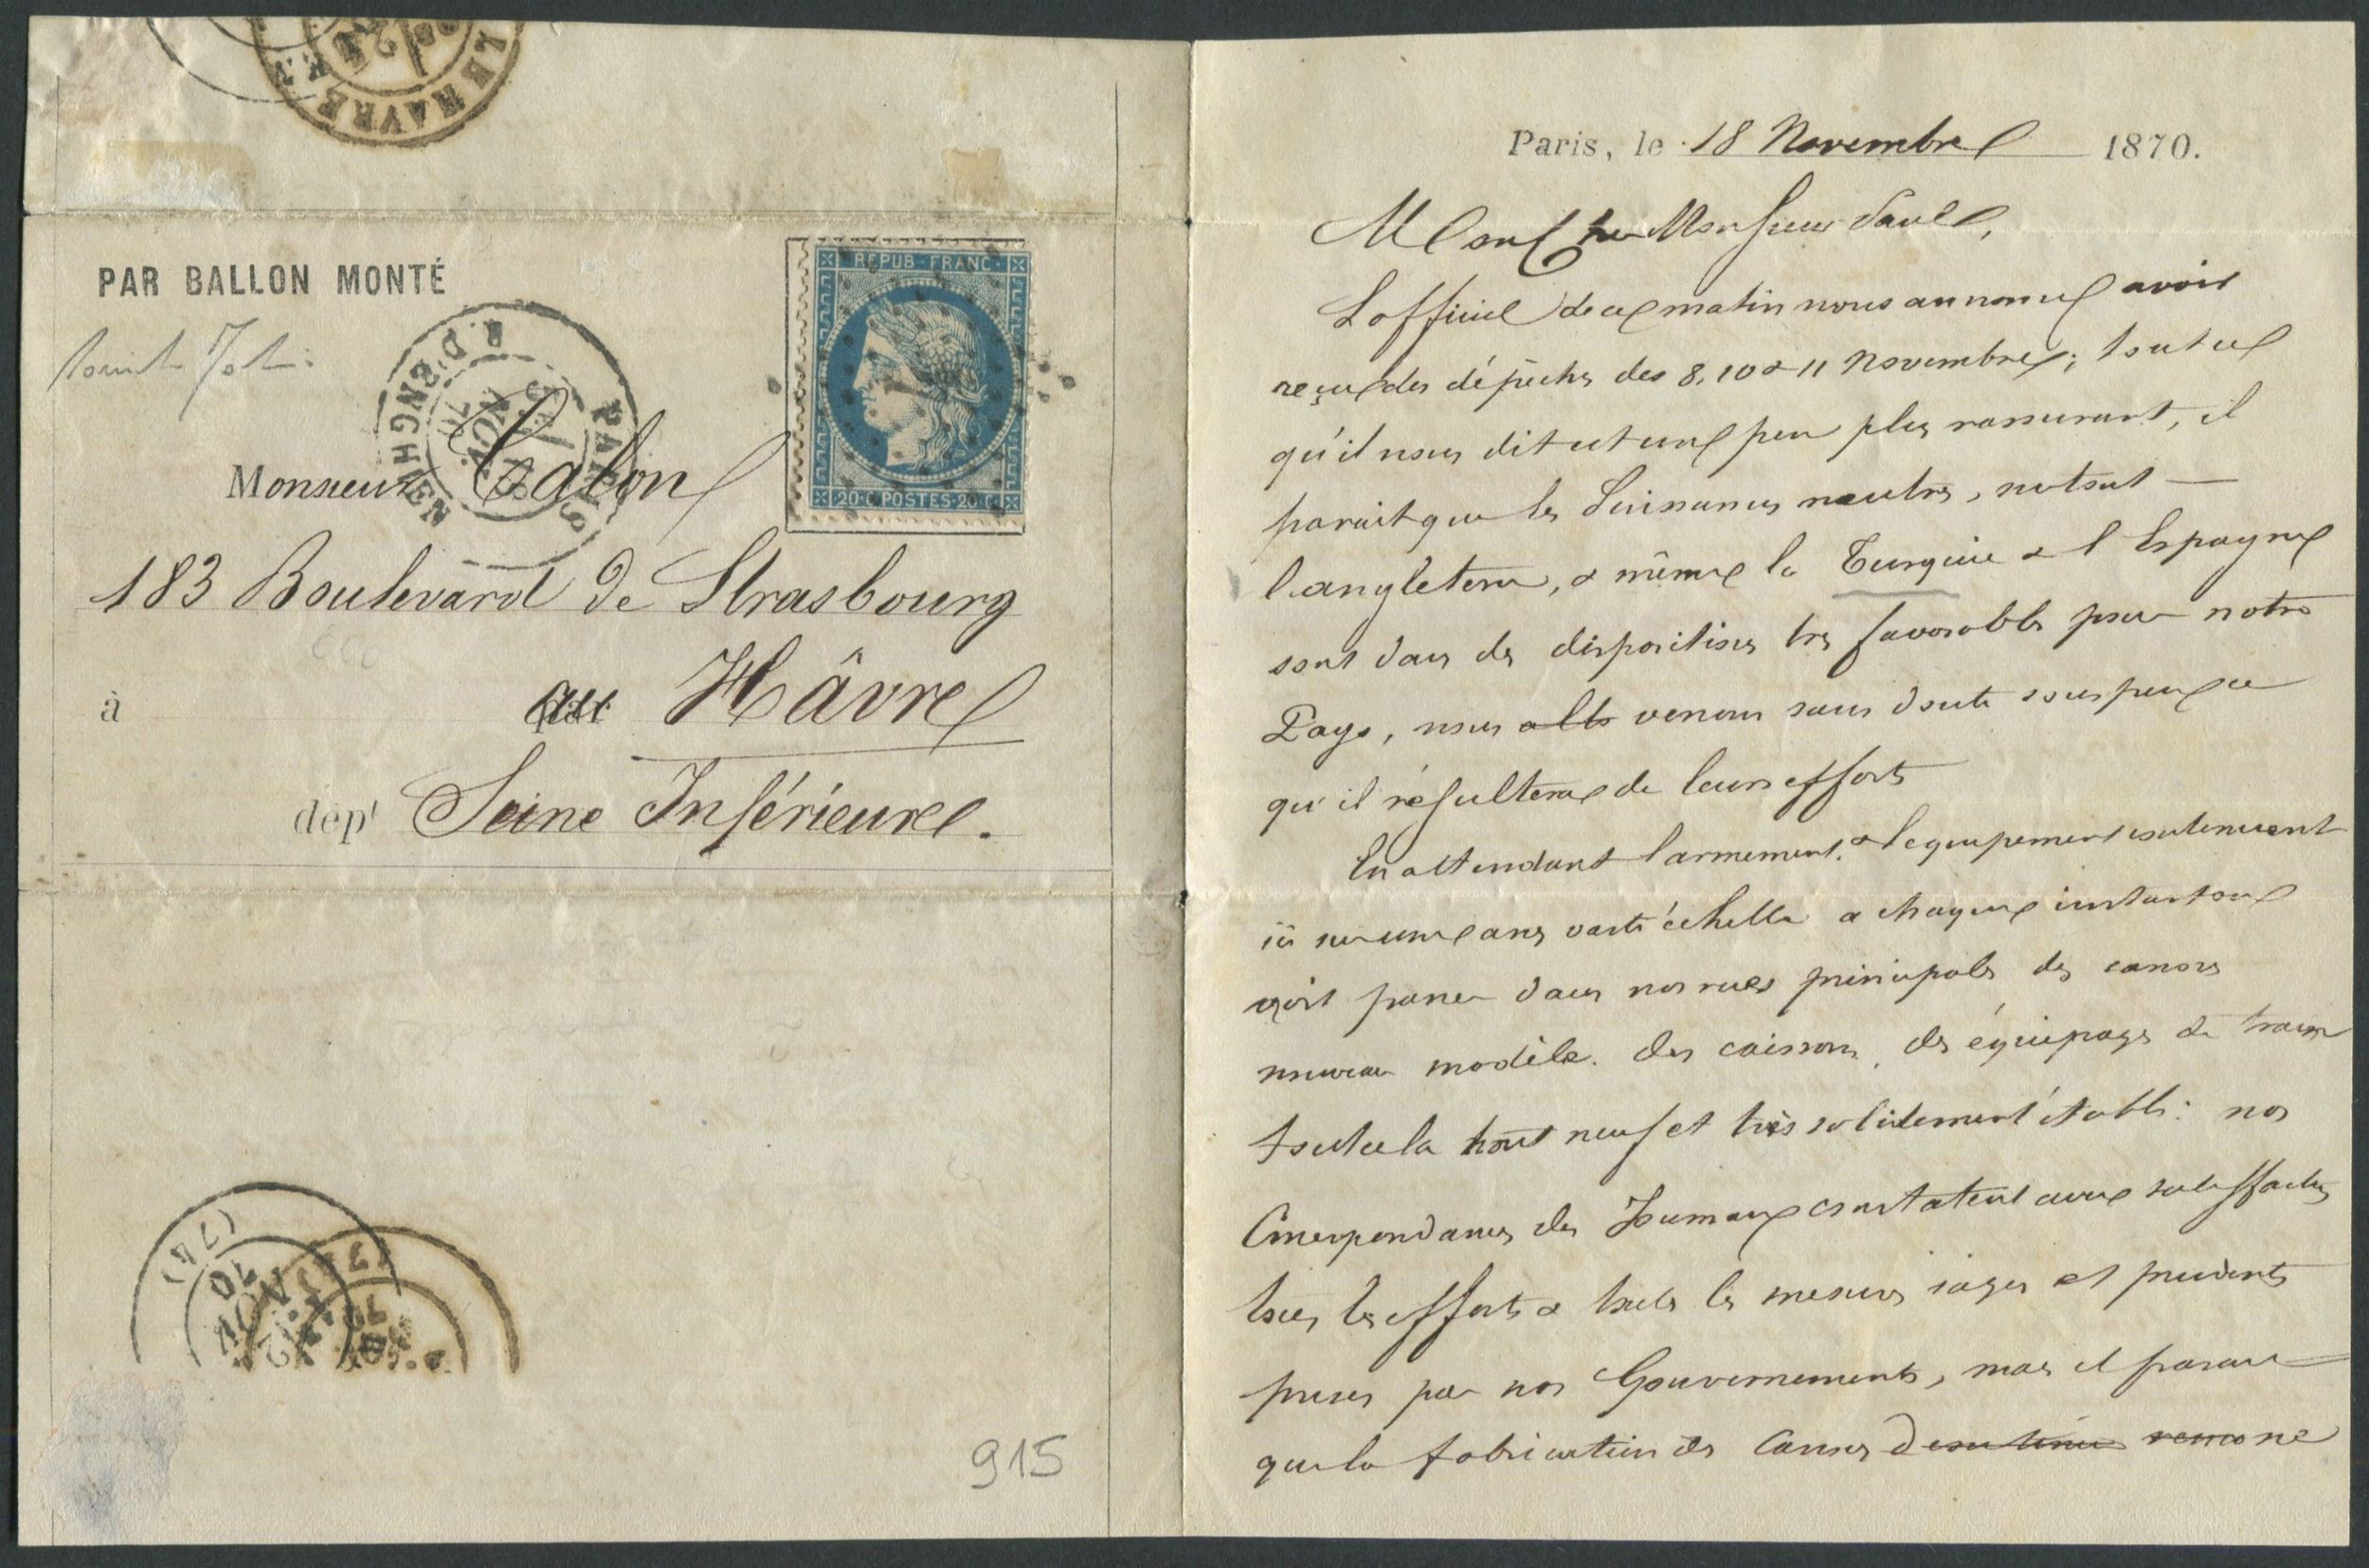 LE HAVRE
PAR BALLON MONTÉ
REPUB·FRANC·
20·C·POSTES·20·C·
PARIS
R. D'ENGHIEN
NOV.
Monsieur Calon
183 Boulevard de Strasbourg
à au Hâvre
dépt Seine Inférieure.
(74)
NOV
70
915
Paris, le 18 Novembre 1870.
Mon cher Monsieur
L'officiel de ce matin nous annonce avoir
reçu des dépêches des 8, 10 & 11 Novembre; tout ce
qu'il nous dit est un peu plus rassurant, il
parait que les Puissances neutres, surtout
l'angleterre, & même la Turquie & l'Espagne
sont dans des dispositions très favorables pour notre
Pays, nous verrons sans doute sous peu ce
qu'il résultera de leurs efforts
En attendant l'armement & l'equipement
ici sur une assez vaste échelle a chaque instant on
voit passer dans nos rues principales des canons
nouveau modèle. des caissons, des équipages de train
tout cela tout neuf et très solidement établi: nos
Correspondances des Journaux constatent avec satisfaction
tous les efforts & toutes les mesures sages et prudentes
prises par nos Gouvernements, mais il parait
que la fabrication des Canons